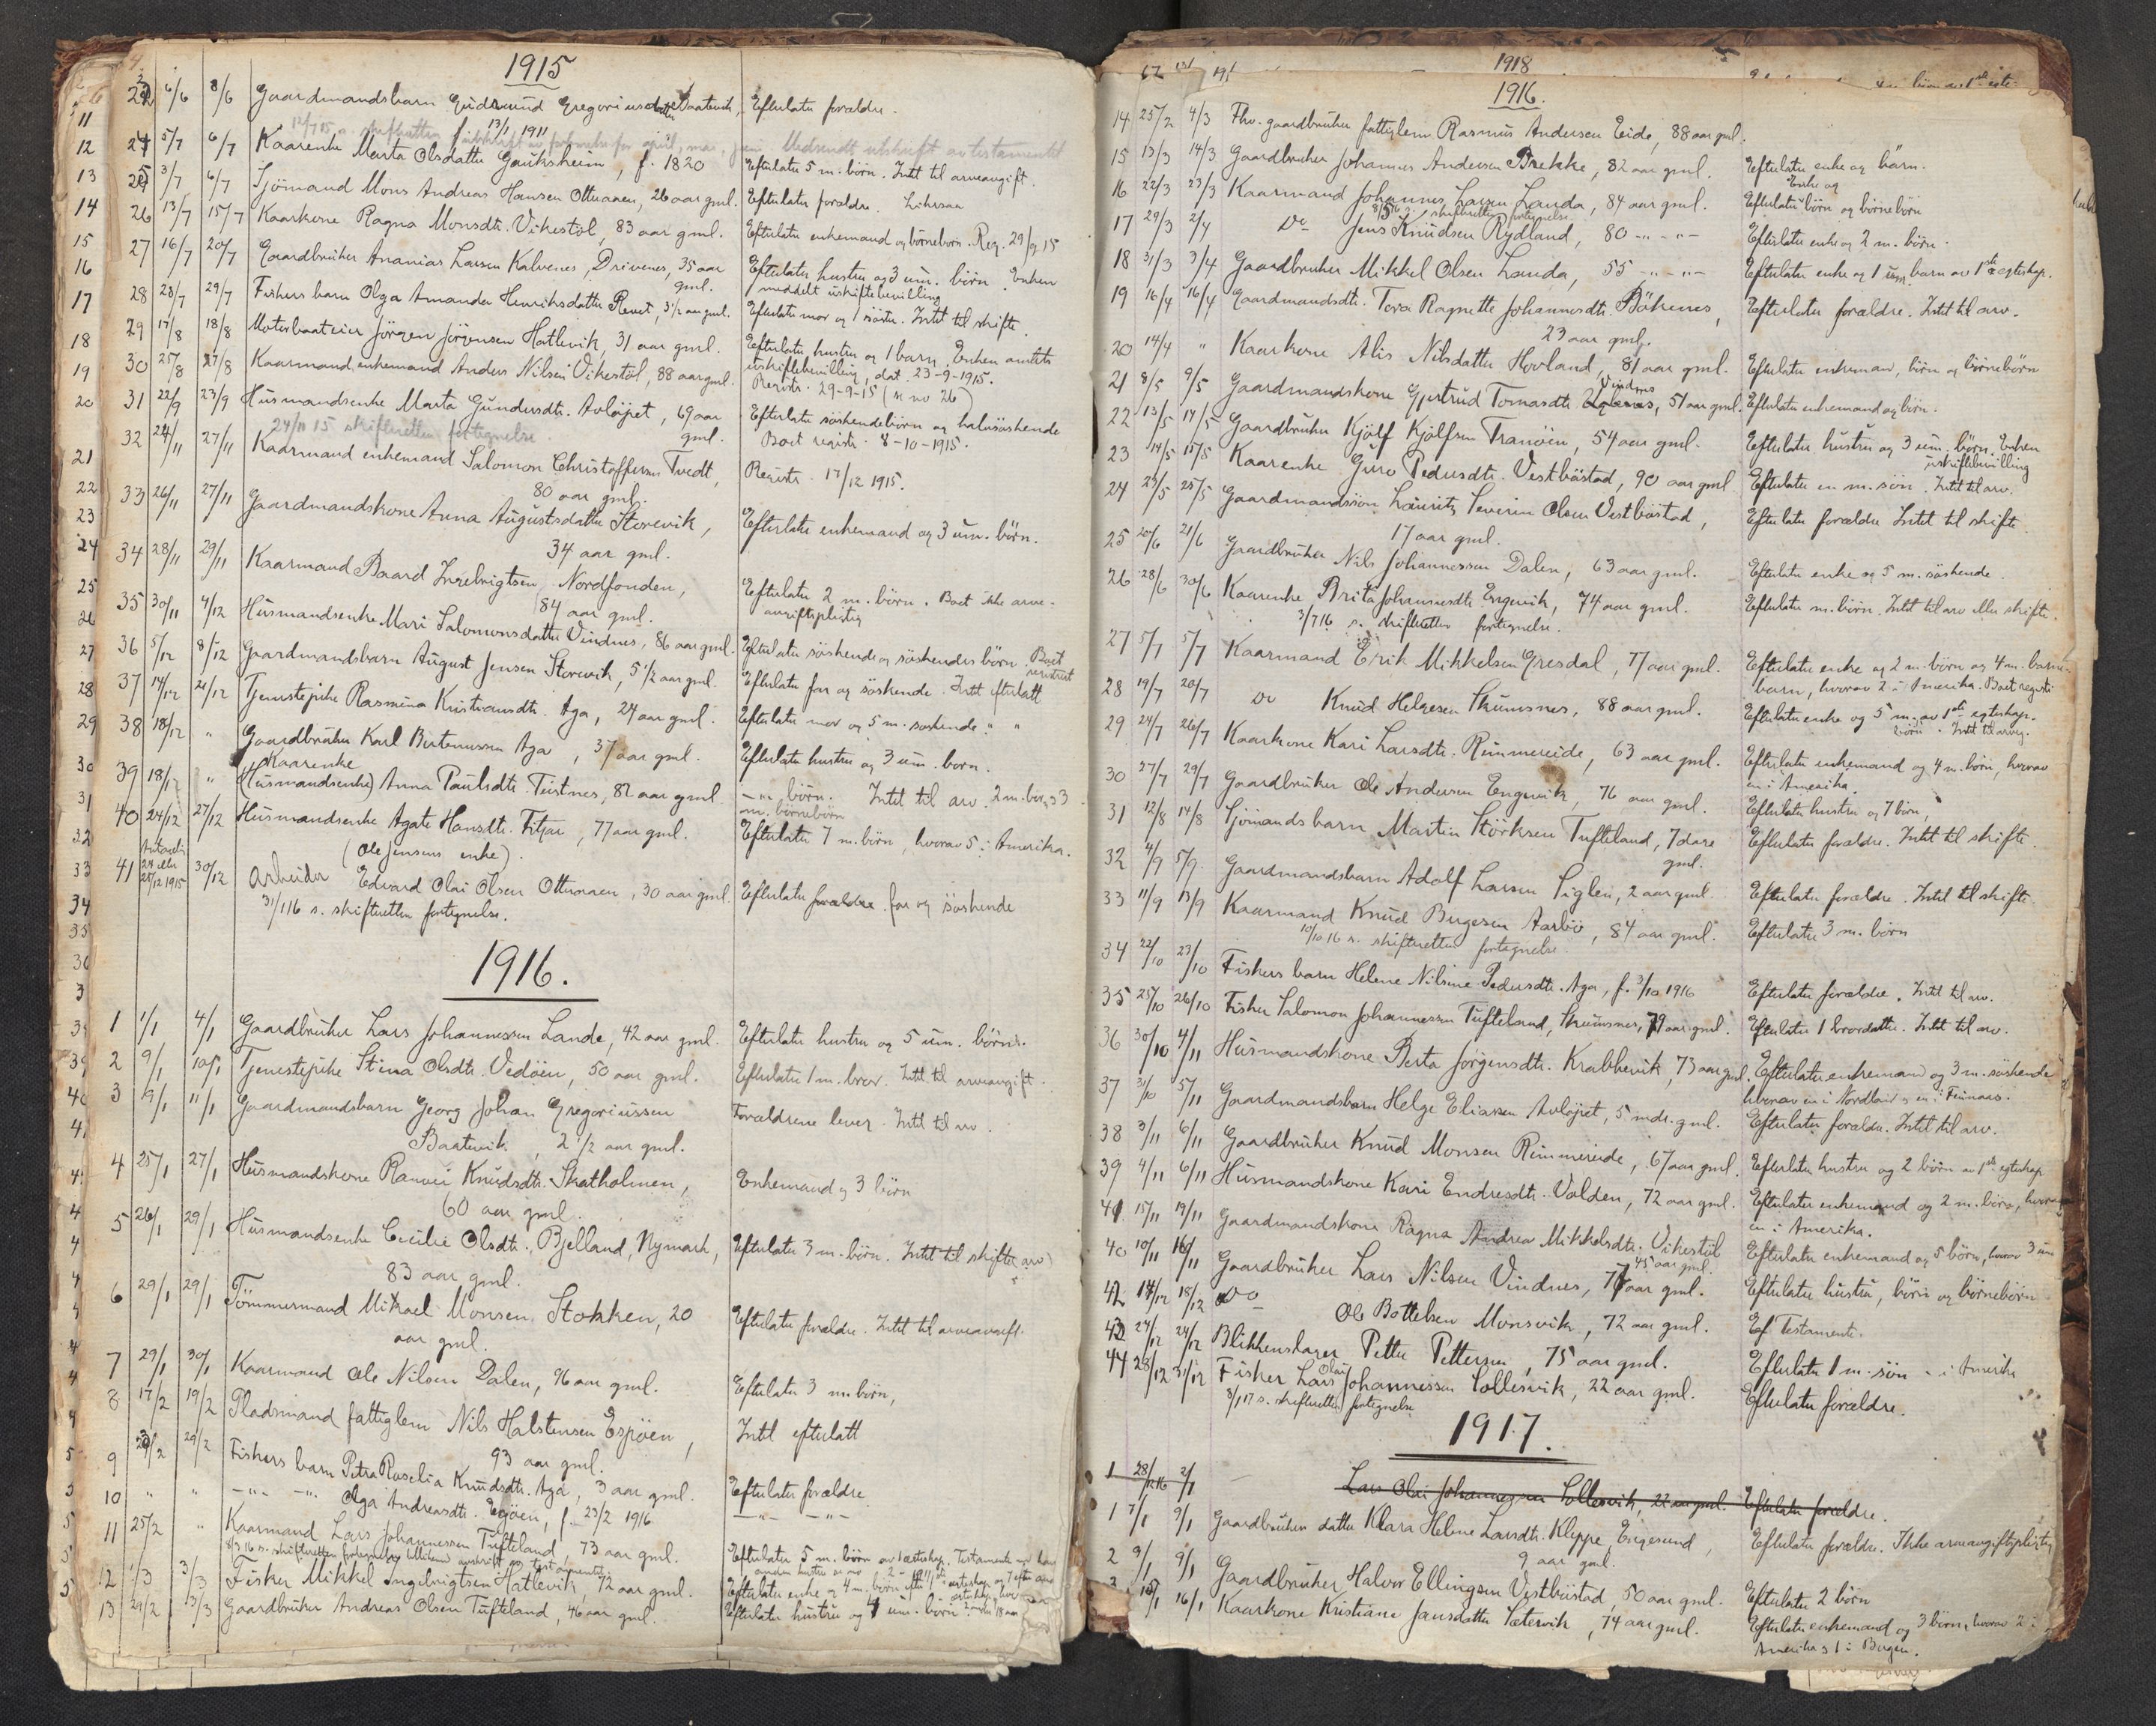 1915
22 6/6 8/6 Gaardmandsbarn Gudmund Gregoriusen Baatevik, Efterlater forældre.
13/1 1911
24 5/7 6/7 Kaarenke Marta Olsdatter Gauksheim, f. 1820 Efterlater 5 m. börn. Intet til arveavgift.
25 3/7 6/7 Sjömand Mons Andreas Hansen Otteraaen, 26 aar gml. Efterlater forældre.
26 13/7 15/7 Kaarkone Ragna Monsdt. Vikestöl, 83 aar gml. Efterlater enkemand og börneborn. Reg. 29/9 15
27 16/7 20/7 Gaardbruker Ananias Larsen Kalvenes, Drivenes, 35 aar gml. Efterlater hustru og 3 um. börn. Enken
meddelt uskiftebevilling
28 28/7 29/7 Fiskers barn Olga Amanda Henriksdatter Revet, 3 1/2 aar gml. Efterlater mor og 1 söster. Intet til skifte.
29 17/8 18/8 Motorbaateier Jörgen Jörgensen Hatlevik, 31 aar gml. Efterlater hustru og 1 barn. Enken meddelt
uskiftebevilling, dat. 23-9-1915.
30 25/8 27/8 Kaarmand, enkemand Anders Nilsen Vikestöl, 88 aar gml. Registr. 29-9-15 (se no 26)
31 22/9 23/9 Husmandsenke Marta Gundersdt. Avlöjpet, 69 aar gml. Efterlater söskendebörn og halvsöskende
24/11 15 skifteretten fortegnelse. Boet registr. 8-10-1915.
32 24/11 27/11 Kaarmand enkemand Salomon Christoffersen Tvedt, Registr. 17/12 1915.
80 aar gml.
33 26/11 27/11 Gaardmandskone Anna Augustsdatter Storevik, Efterlater enkemand og 3 um. börn.
34 aar gml.
34 28/11 29/11 Kaarmand Baard Ingebrigtsen Nordfonden, Efterlater 2 m. börn. Boet ikke arve-
84 aar gml. avgiftspligtig
35 30/11 4/12 Husmandsenke Mari Salomonsdatter Vindnes, 86 aar gml. Efterlater söskende og söskendes börn. Boet registrert
36 5/12 8/12 Gaardmandsbarn August Jensen Storevik, 5 1/2 aar gml. Efterlater far og söskende. Intet efterlatt
37 14/12 21/12 Tjenestepike Rasmina Kristiansdt. Aga, 24 aar gml. Efterlater mor og 5 m. söskende " "
38 18/12 " Gaardbruker Karl Bertenussen Aga, 37 aar gml. Efterlater hustru og 3 um. born.
Kaarenke
39 18/12 " (Husmandsenke) Anna Paulsdt. Teistnes, 82 aar gml. -"- börn. Intet til arv. 2 m. börn og 3
m. börnebörn
40 24/12 27/12 Husmandsenke Agate Hansdt. Fitjar, 77 aar gml. Efterlater 7 m. börn, hvorav 5 i Amerika.
(Ole Jensens enke).
41 Antagelig 24 eller 25/12 1915 30/12 Arbeider Edvard Olai Olsen Otteraaen, 30 aar gml. Efterlater forældre far og söskende
31/1 16 s. skifteretten fortegnelse.
1916.
1 1/1 4/1 Gaardbruker Lars Johannessen Lande, 42 aar gml. Efterlater hustru og 5 um. börn.
2 9/1 10/1 Tjenestepike Stina Olsdt. Vedöen, 50 aar gml. Efterlater 1 m. bror. Intet til arveavgift.
3 9/1 11/1 Gaardmandsbarn Georg Johan Gregoriussen Forældrene lever. Intet til arv.
Baatevik, 2 1/2 aar gml.
4 25/1 27/1 Husmandskone Ranvei Knudsdt. Skatholmen, Enkemand og 3 börn
60 aar gml.
5 26/1 29/1 Husmandsenke Cecilie Olsdt. Bjelland, Nymark, Efterlater 3 m. börn. Intet til skifte (arv)
83 aar gml.
6 29/1 29/1 Tömmermand Mikael Monsen Stokken, 20 Efterlater forældre. Intet til arveavgift.
aar gml.
7 29/1 30/1 Kaarmand Ole Nilsen Dalen, 96 aar gml. Efterlater 3 m. börn,
8 17/2 19/2 Pladsmand fattiglem Nils Halstensen Espöen, Intet efterlatt
93 aar gml.
9 29/2 29/2 Fiskers barn Petra Roselia Knudsdt. Aga, 3 aar gml. Efterlater forældre
10 " " -"- -"- Olga Andreasdt. Engöen, f. 23/2 1916 -"- -"-
11 25/2 " Kaarmand Lars Johannessen Tufteland, 73 aar gml. Efterlater 5 m. börn av 1 ekteskap. Testamente
12 1/3 3/3 Fisker Mikkel Ingebrigtsen Hatlevik, 72 aar gml. Efterlater enke og 4 m. börn efter
13 29/2 3/3 Gaardbruker Andreas Olsen Tufteland, 46 aar gml. Efterlater hustru og 4 um. börn
1918
1916.
14 25/2 4/3 Fhv. gaardbruker fattiglem Rasmus Andersen Eide, 88 aar gml.
15 13/3 14/3 Gaardbruker Johannes Andersen Brekke, 82 aar gml. Efterlater enke og börn.
Enke og
16 22/3 23/3 Kaarmand Johannes Larsen Landa, 84 aar gml. Efterlater börn og börnebörn
17 29/3 2/4 Do Jens Knudsen Rydland, 80 -"- -"- Efterlater enke og 2 m. börn.
18 31/3 3/4 Gaardbruker Mikkel Olsen Landa, 55 -"- -"- Efterlater enke og 1 um. barn av 1ste egteskap.
19 16/4 16/4 Gaardmandsdt. Tora Ragnette Johannesdt. Bökenes, Efterlater forældre. Intet til arv.
23 aar gml.
20 14/4 " Kaarkone Alis Nilsdatter Hovland, 81 aar gml. Efterlater enkemand, börn og börnebörn
Vindnes
21 8/5 9/5 Gaardmandskone Gjertrud Tomasdt., 51 aar gml. Efterlater enkemand og börn.
22 13/5 14/5 Gaardbruker Kjölf Kjölfsen Tranöen, 54 aar gml. Efterlater hustru og 3 um. börn. Enken
uskiftebevilling
23 14/5 15/5 Kaarenke Guro Pedersdt. Vestböstad, 90 aar gml. Efterlater en m. sön. Intet til arv.
24 23/5 25/5 Gaardmandssön Lauritz Severin Olsen Vestböstad, Efterlater forældre Intet til skifte.
17 aar gml.
25 20/6 21/6 Gaardbruker Nils Johannessen Dalen, 63 aar gml. Efterlater enke og 5 m. söskende.
26 28/6 30/6 Kaarenke Brita Johannesdt. Engevik, 74 aar gml. Efterlater m. börn. Intet til arv eller skifte.
3/7 16 s. skifteretten fortegnelse.
27 5/7 5/7 Kaarmand Erik Mikkelsen Gresdal, 77 aar gml. Efterlater enke og 2 m. börn og 4 m. barne-
barn, hvorav 2 i Amerika. Boet registr.
28 19/7 20/7 Do Knud Helgesen Skumsnes, 88 aar gml. Efterlater enke og 5 m. av 1ste egteskap.
börn. Intet til arv.
29 24/7 26/7 Kaarkone Kari Larsdt. Rimmereide, 63 aar gml. Efterlater enkemand og 4 m. börn, hvorav
en i Amerika.
30 27/7 29/7 Gaardbruker Ole Andersen Engevik, 76 aar gml. Efterlater hustru og 7 börn,
31 12/8 14/8 Sjömands barn Martin Störksen Tufteland, 7 dage Efterlater forældre. Intet til skifte.
gml.
32 4/9 5/9 Gaardmandsbarn Adolf Larsen Siglen, 2 aar gml. Efterlater forældre. Intet til skifte
33 11/9 13/9 Kaarmand Knud Birgesen Aarbö, 84 aar gml. Efterlater 3 m. börn
10/10 16 s. skifteretten fortegnelse
34 22/10 23/10 Fiskers barn Helene Nilsine Pedersdt. Aga, f. 3/10 1916 Efterlater forældre. Intet til arv.
35 25/10 26/10 Fisker Salomon Johannessen Tufteland, Skumsnes, 79 aar gml. Efterlater 1 brordatter. Intet til arv.
36 30/10 4/11 Husmandskone Berta Jörgensdt. Krabbevik, 73 aar gml. Efterlater enkemand og 3 m. söskende
hvorav en i Nordland og en i Finnaas.
37 31/10 5/11 Gaardmandsbarn Helge Eliassen Avlöjpet, 5 mdr. gml. Efterlater forældre. Intet til arv.
38 3/11 6/11 Gaardbruker Knud Monsen Rimmereide, 67 aar gml. Efterlater hustru og 2 börn av 1ste egteskap
39 4/11 6/11 Husmandskone Kari Endresdt. Volden, 72 aar gml. Efterlater enkemand og 2 m. börn, hvorav
en i Amerika.
41 15/11 19/11 Gaardmandskone Ragna Andrea Mikkelsdt. Vikestöl Efterlater enkemand og 5 börn, hvorav 3 um
45 aar gml.
40 10/11 16/11 Gaardbruker Lars Nilsen Vindnes, 77 aar gml. Efterlater hustru, börn og börnebörn
42 14/12 18/12 Do Ole Bottelsen Monsvik, 72 aar gml. Ef Testamente.
43 24/12 24/12 Blikkenslager Petter Pettersen, 75 aar gml. Efterlater 1 m. sön - i Amerika
Olai
44 28/12 31/12 Fisker Lars Johannessen Sollesvik, 22 aar gml. Efterlater forældre.
3/1 17 s. skifteretten fortegnelse
1917.
1 28/12 16 2/1 Lars Olai Johannessen Sollesvik, 22 aar gml. Efterlater forældre.
1 7/1 9/1 Gaardbrukers datter Klara Helene Larsdt. Kleppe, Engesund, Efterlater forældre. Ikke arveavgiftspligtig
9 aar gml.
2 9/1 9/1 Gaardbruker Halvor Ellingsen Vestbøstad, 50 aar gml. Efterlater 2 börn
3 15/1 16/1 Kaarkone Kristiane Jansdatter Sætervik, 74 aar gml. Efterlater enkemand og 3 börn, hvorav 2 i
Amerika og 1 i Bergen.